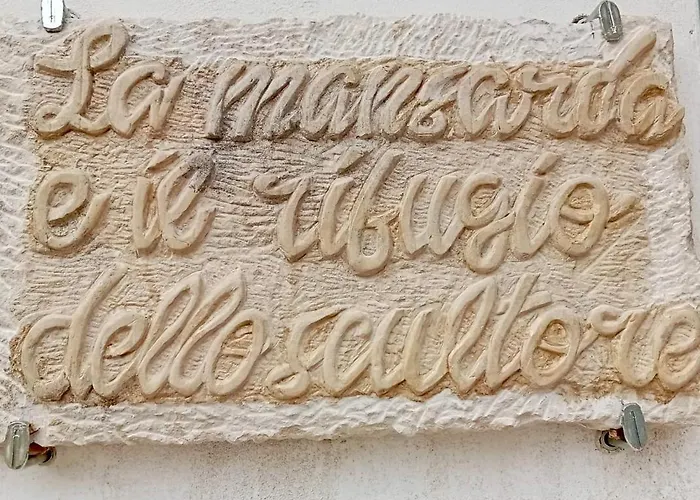 La mansarda
e il rifugio
dello scultore